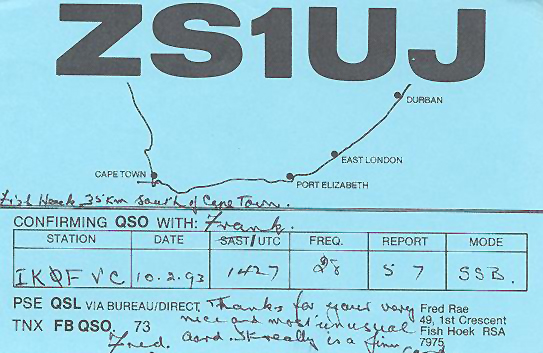 ZS1UJ
DURBAN
EAST LONDON
CAPE TOWN
PORT ELIZABETH
Fish Hoek, 35 km south of Cape Town.
CONFIRMING QSO WITH: Frank.
STATION DATE SAST/UTC FREQ. REPORT MODE
IKØFVC 10.2.93 1427 28 57 SSB.
PSE QSL VIA BUREAU/DIRECT, Thanks for your very
nice and most unusual
TNX FB QSO, 73
Fred. card. It really is a fine
card
Fred Rae
49, 1st Crescent
Fish Hoek RSA
7975